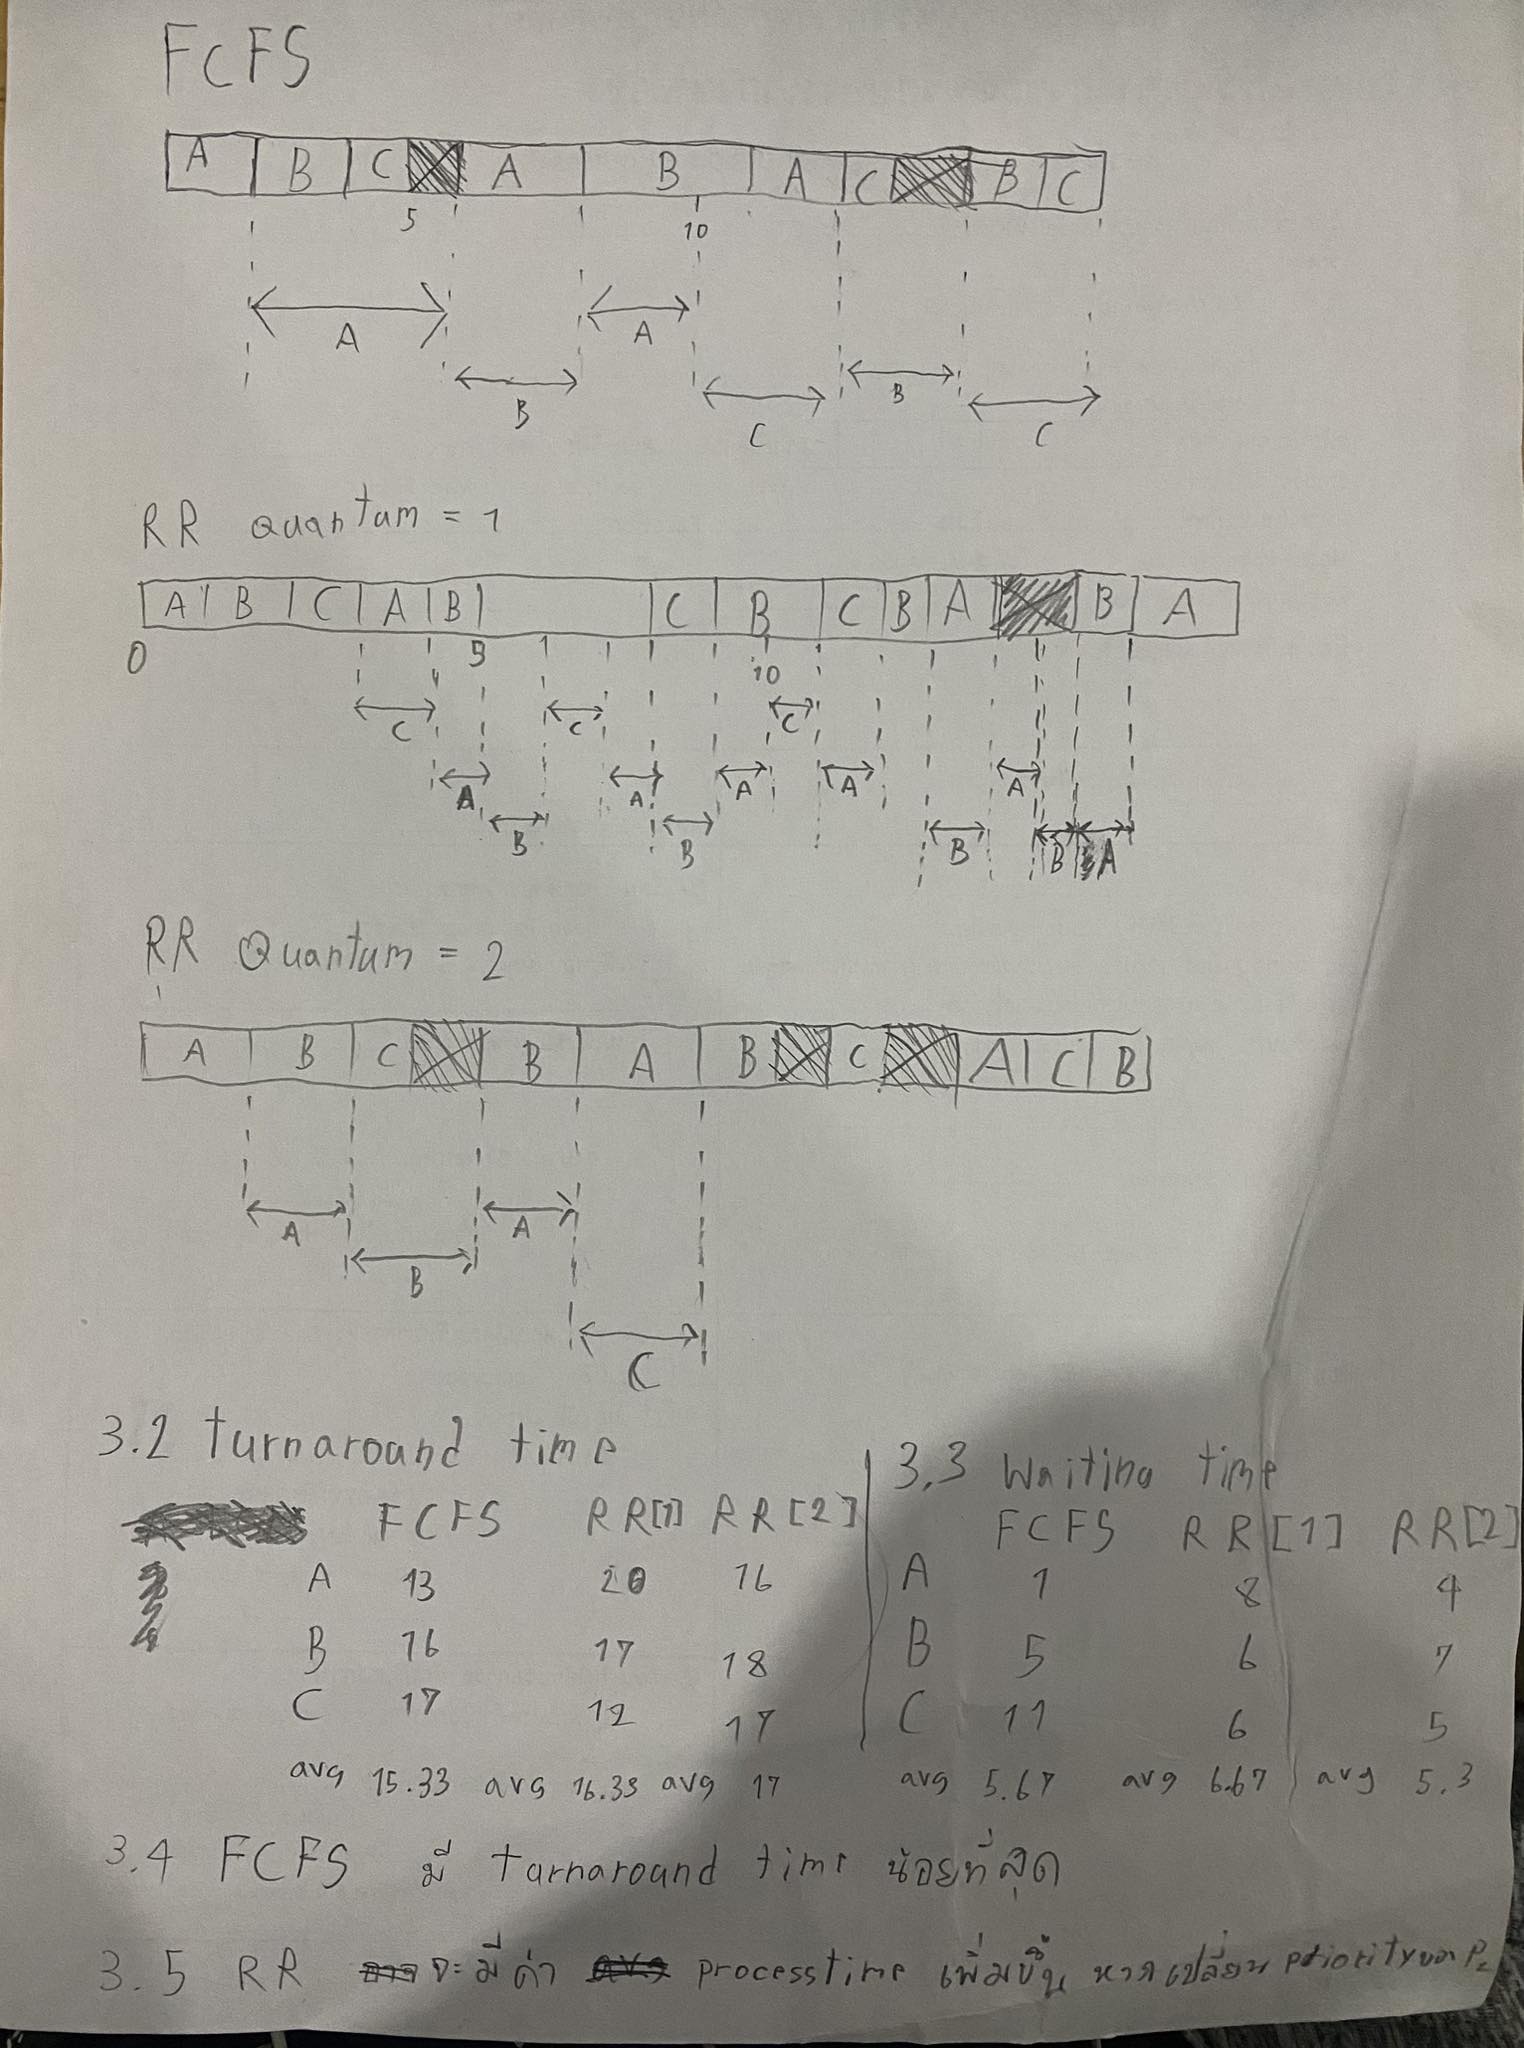 FCFS
A B C A B A C B C
5 10
A A
B B
C C
RR quantum = 1
A B C A B C B C B A B A
0 5 10
C C C
A A A A A
B B B B A
RR Quantum = 2
A B C B A B C A C B
A A
B
C
3.2 turnaround time
FCFS RR[1] RR[2]
A 13 20 16
B 16 17 18
C 17 12 17
avg 15.33 avg 16.33 avg 17
3.3 Waiting time
FCFS RR[1] RR[2]
A 1 8 4
B 5 6 7
C 11 6 5
avg 5.67 avg 6.67 avg 5.3
3.4 FCFS มี turnaround time น้อยที่สุด
3.5 RR จะมีค่า processtime เพิ่มขึ้น หากเปลี่ยน priority ของ P2